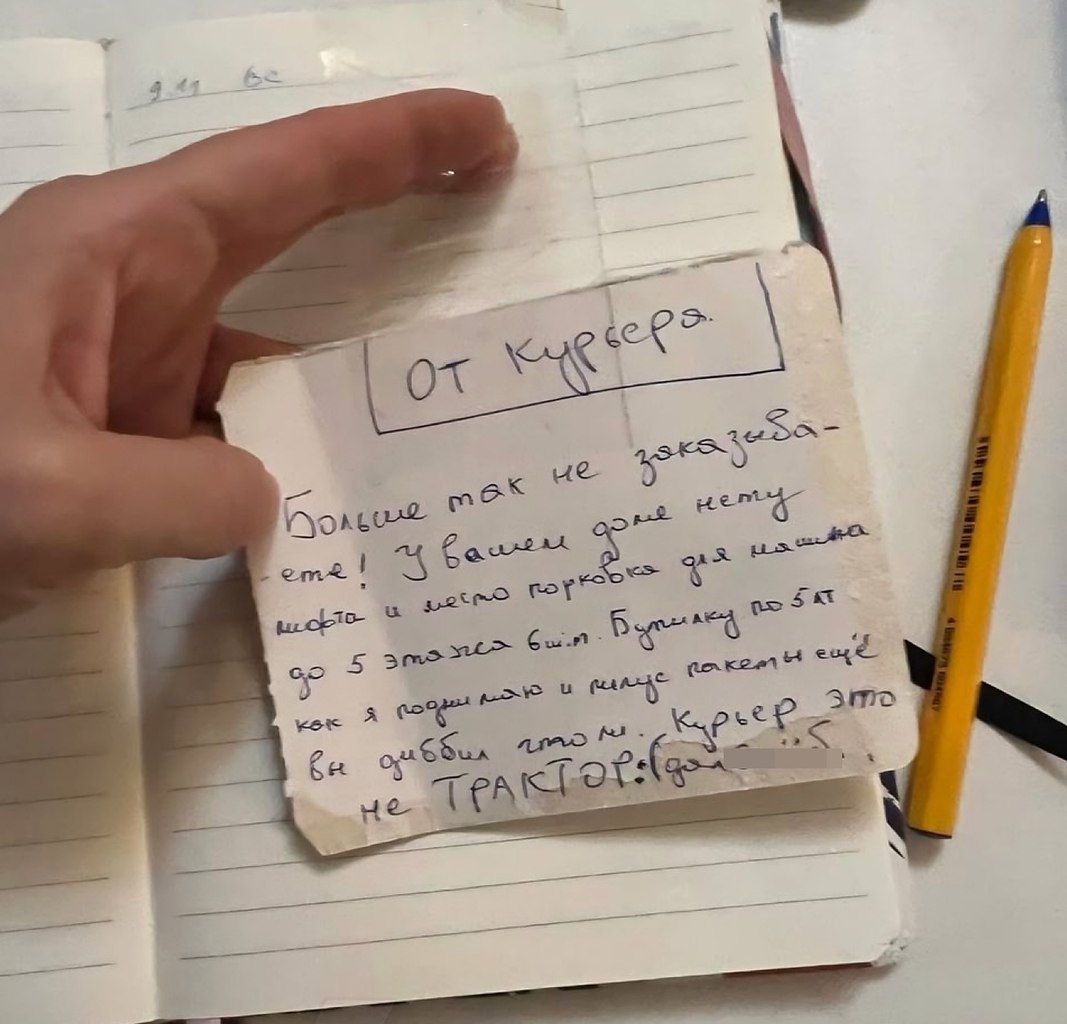 9.11 вс
От Курьера.
Больше так не заказыва-
-ете! У вашем доме нету
лифта и место порковка для машина
до 5 этажа 6 ш.т. Бутилку по 5 лт
как я поднимаю и плюс пакеты ещё
вы диббил што ли. Курьер это
не ТРАКТОР:(